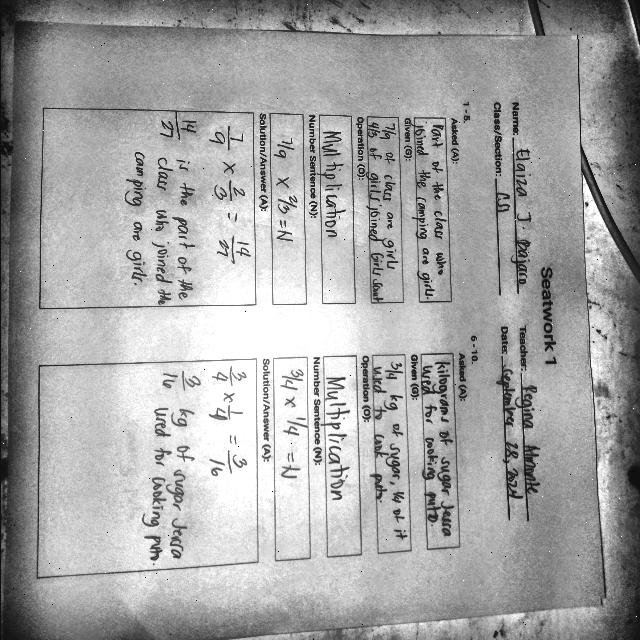 Seatwork 1
Name: Elaiza J.
Teacher: Regina
Class/Section:
Date: September 28,
1 - 5.
Asked (A):
Part of the class who
joined the camping are girls.
Given (G):
7/9 of class are girls
of girls joined Girls Scout
Operation (O):
Multiplication
Number Sentence (N):
7/9 x 2/3 = N
Solution/Answer (A):
7/9 x 2/3 = 14/27
14/27 is the part of the
class who joined the
camping are girls.
6 - 10.
Asked (A):
kilograms of sugar Jecca
used for cooking
Given (G):
3/4 kg of sugar, 1/4 of it
used to cook
Operation (O):
Multiplication
Number Sentence (N):
3/4 x 1/4 = N
Solution/Answer (A):
3/4 x 1/4 = 3/16
3/16 kg of sugar Jecca
used for cooking